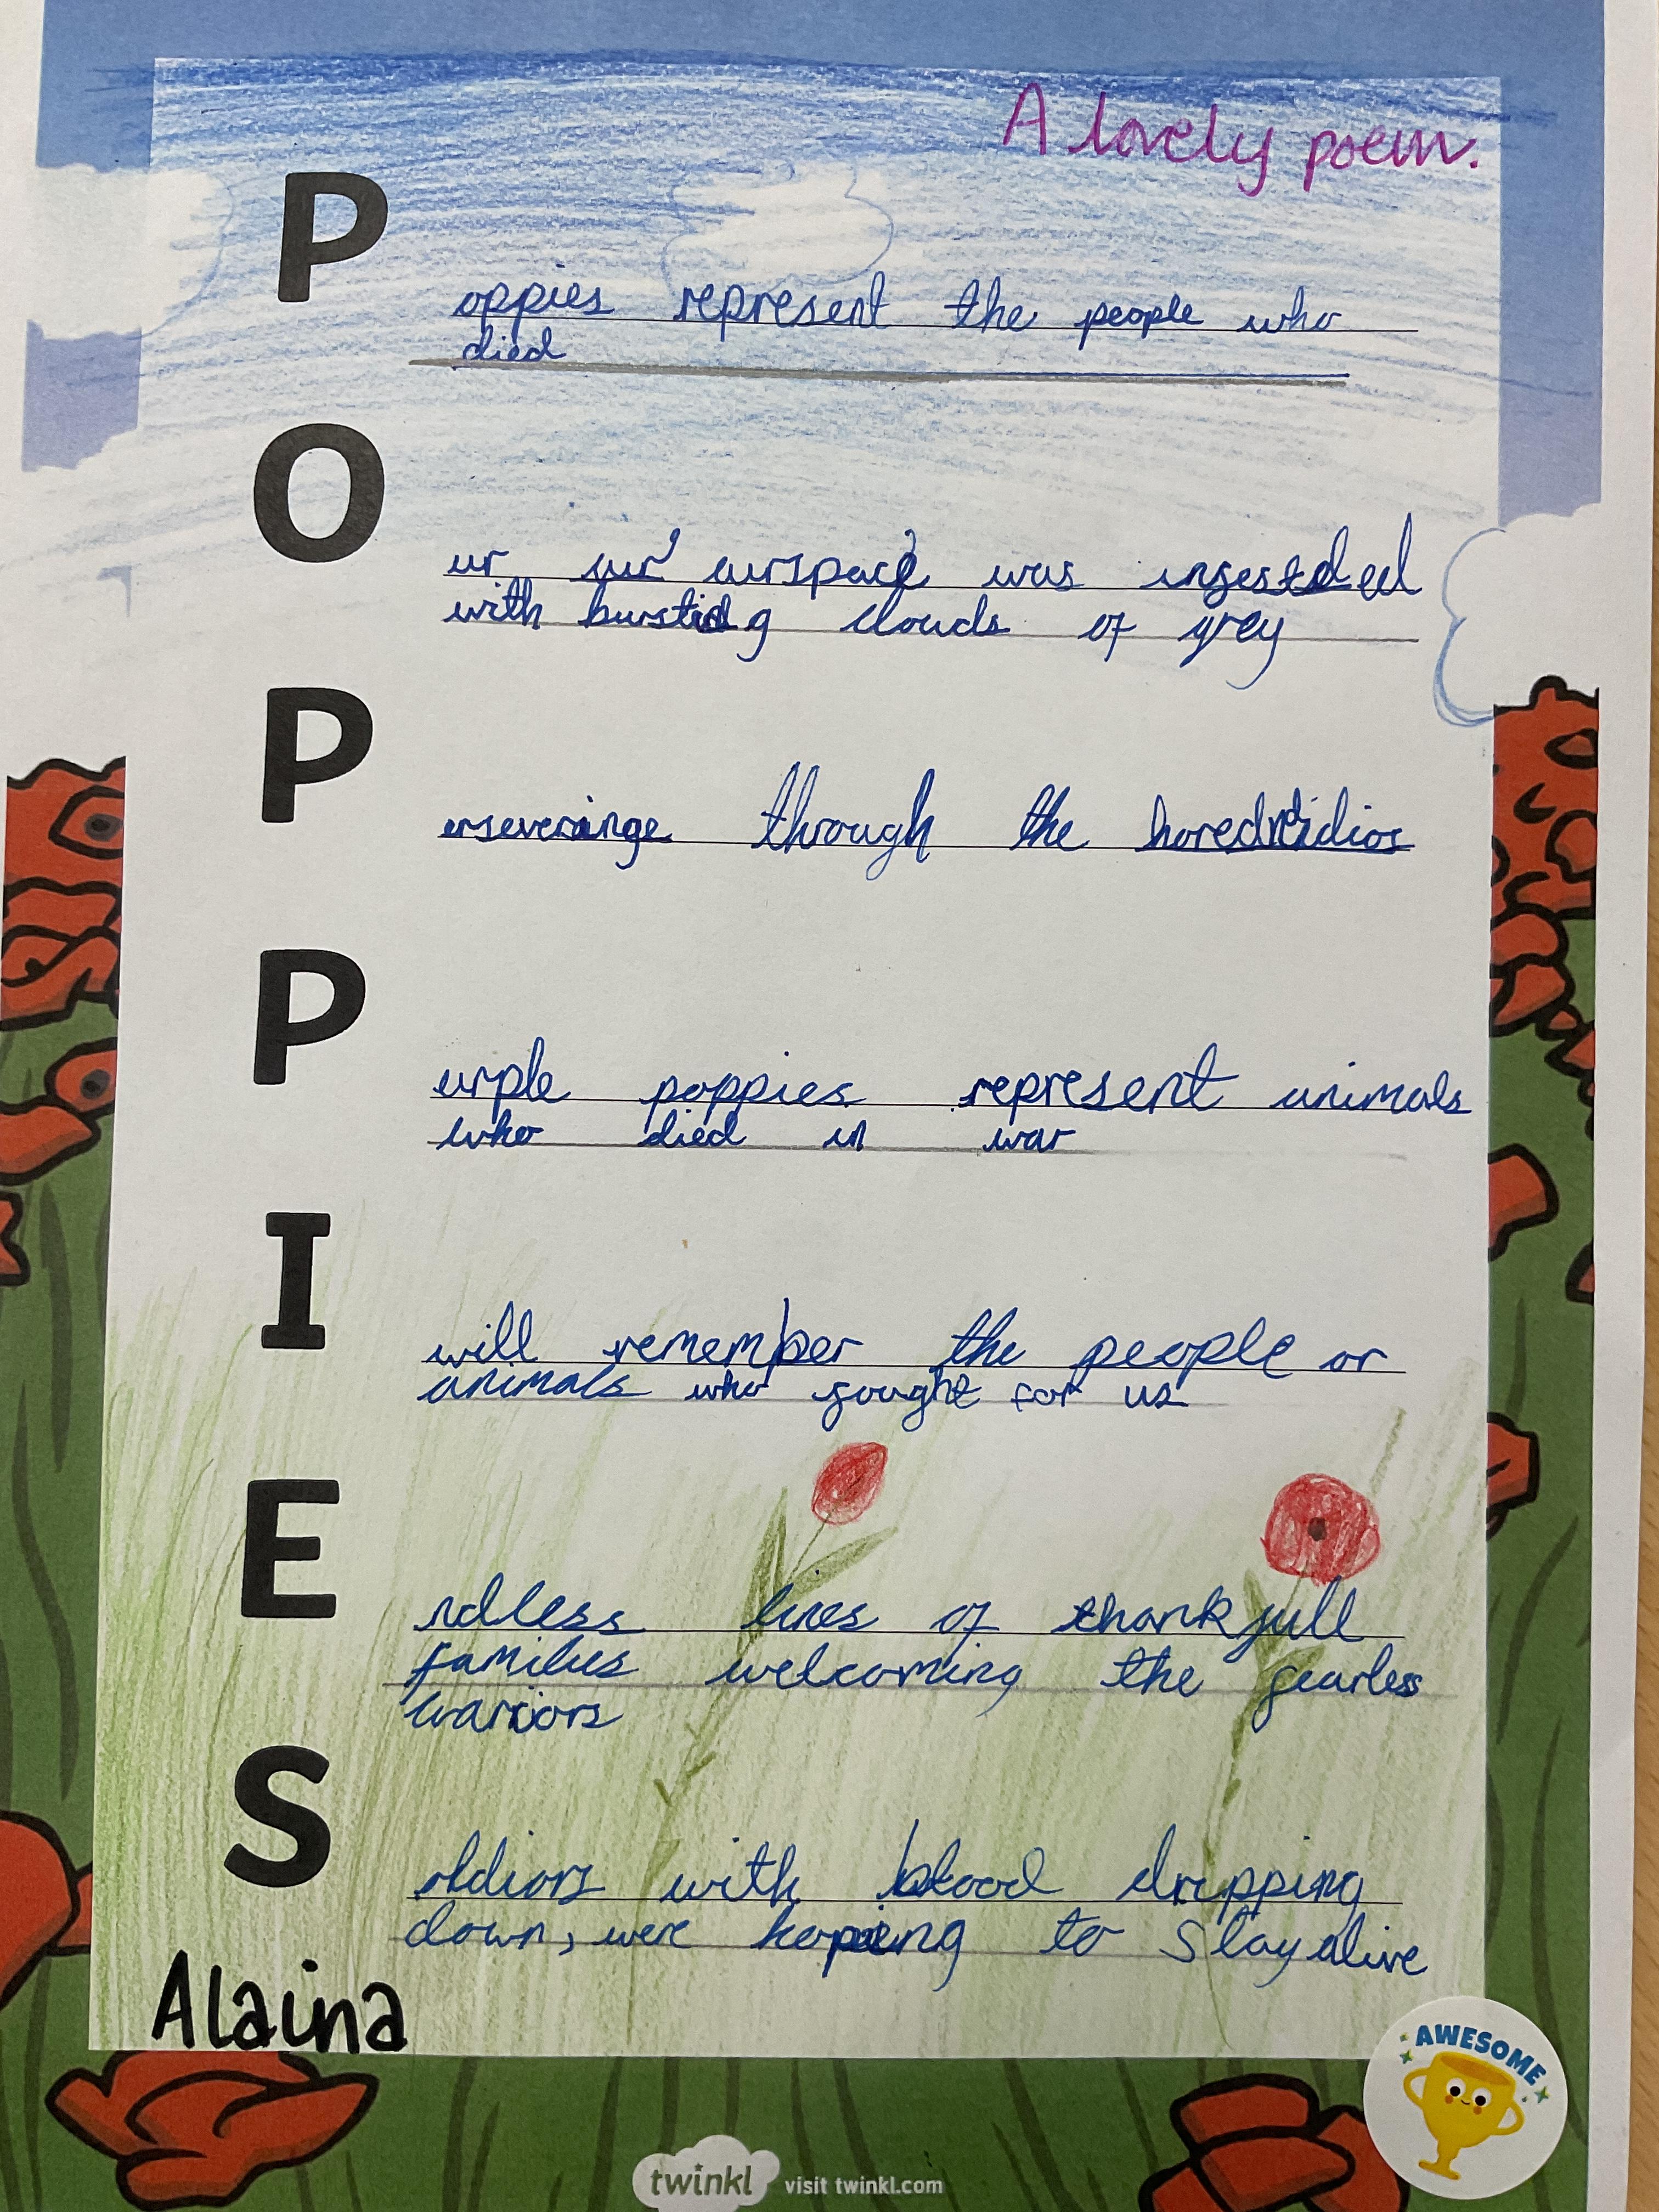 A lovely poem.
P
oppies represent the people who
died
O
ur air airspace was ingested
with bursting clouds of grey
P
erseveringe through the
P
urple poppies represent animals
who died in war
I
will remember the people or
animals who fought for us
E
ndless lines of thankfull
families welcoming the fearless
warriors
S
oldiors with blood dripping
down, were hopeing to Stay alive
Alaina
AWESOME
twinkl visit twinkl.com